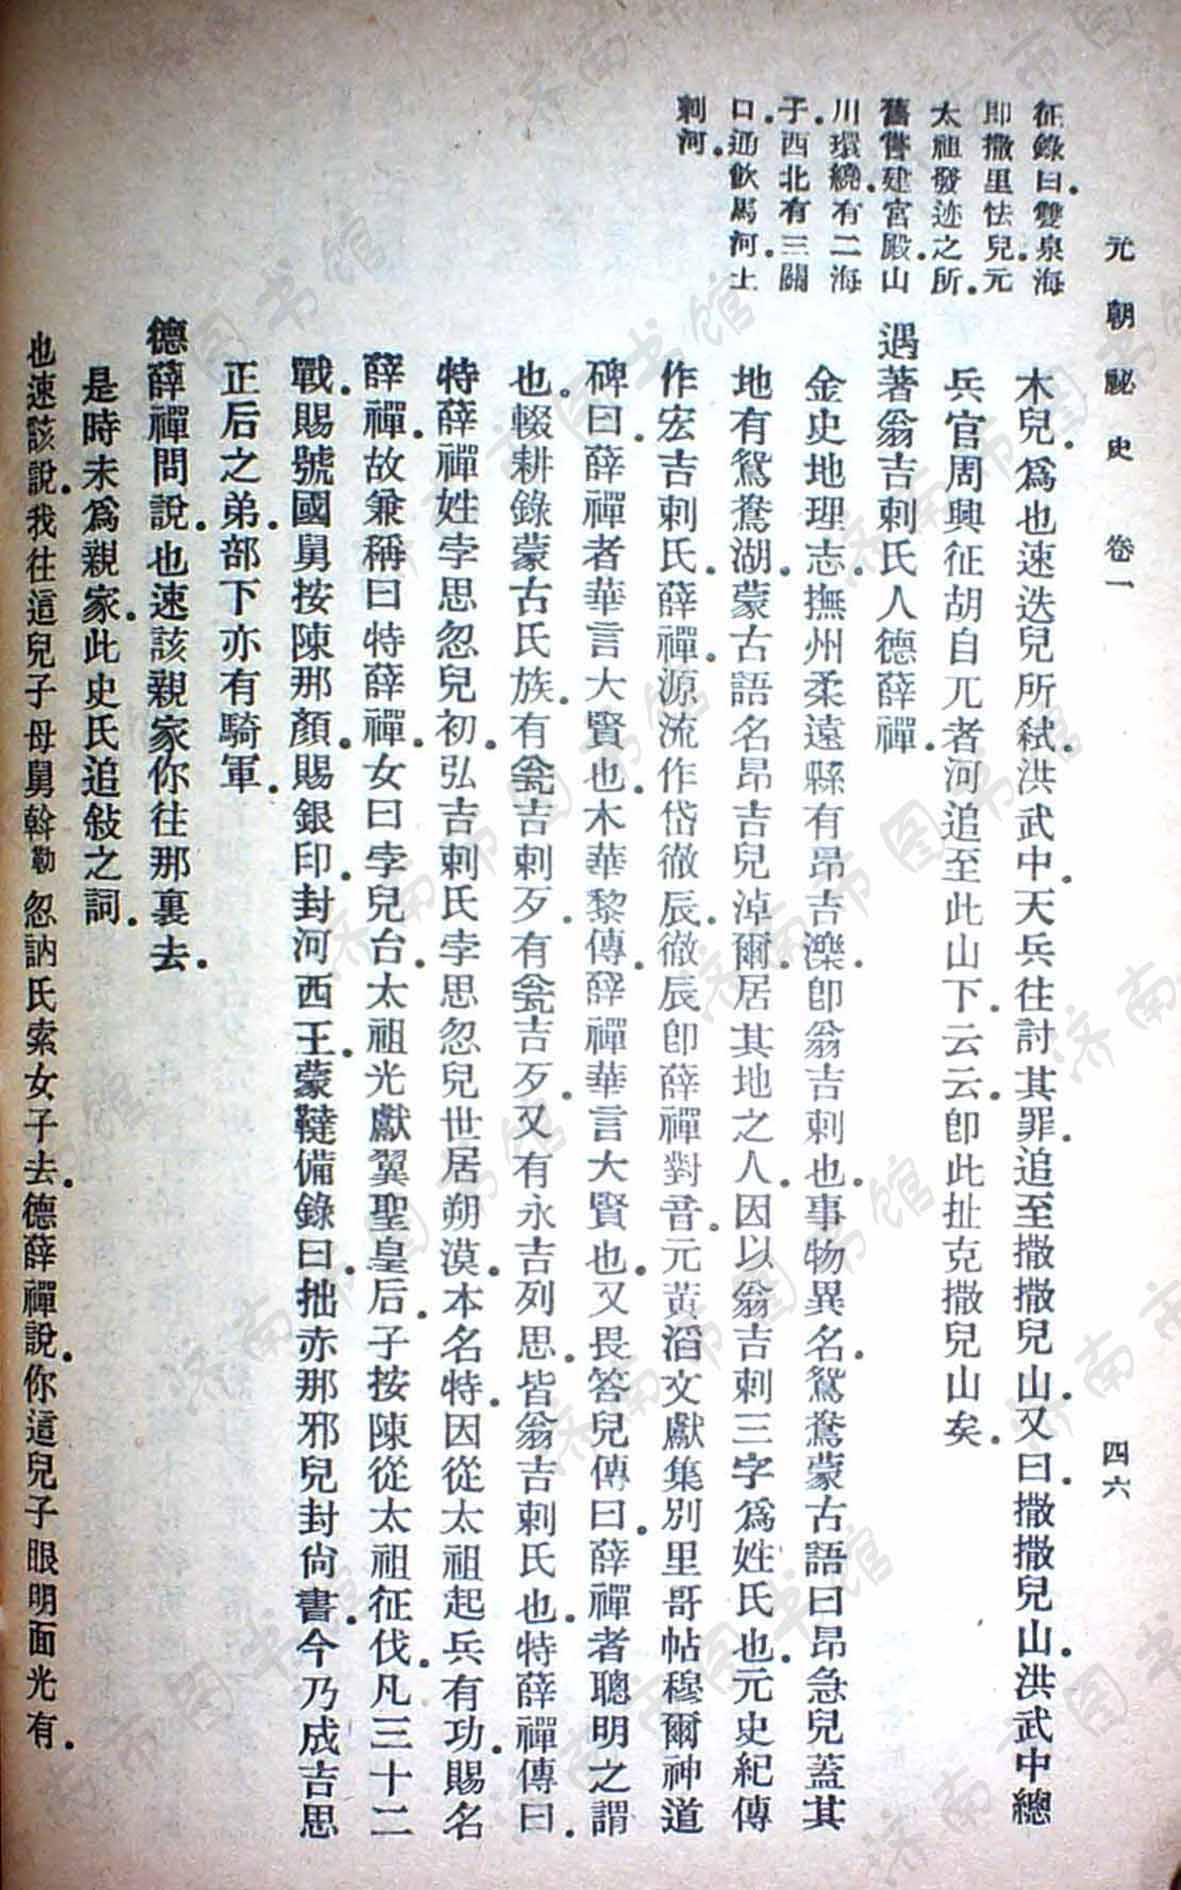 元朝祕史 卷一 四六
征錄曰。雙泉海
即撒里怯兒。元
太祖發迹之所。
舊嘗建宮殿。山
川環繞。有二海
子。西北有三關
口。通飲馬河。土
剌河。
木兒。爲也速迭兒所弒。洪武中。天兵往討其罪。追至撒撒兒山。又曰。撒撒兒山。洪武中總
兵官周興征胡自兀者河追至此山下。云云。卽此扯克撒兒山矣。
遇著翁吉剌氏人德薛禪。
金史地理志。撫州柔遠縣有昂吉濼。卽翁吉剌也。事物異名。鴛鴦蒙古語曰昂急兒。蓋其
地有鴛鴦湖。蒙古語名昂吉兒淖爾。居其地之人。因以翁吉剌三字爲姓氏也。元史紀傳
作宏吉剌氏。薛禪。源流作岱徹辰。徹辰卽薛禪對音。元黃滔文獻集別里哥帖穆爾神道
碑曰。薛禪者華言大賢也。木華黎傳。薛禪華言大賢也。又畏答兒傳曰。薛禪者聰明之謂
也。輟耕錄蒙古氏族。有瓮吉剌歹。有瓮吉歹。又有永吉列思。皆翁吉剌氏也。特薛禪傳曰。
特薛禪姓孛思忽兒初。弘吉剌氏孛思忽兒世居朔漠。本名特。因從太祖起兵有功。賜名
薛禪。故兼稱曰特薛禪。女曰孛兒台。太祖光獻翼聖皇后。子按陳從太祖征伐。凡三十二
戰。賜號國舅按陳那顏。賜銀印。封河西王。蒙韃備錄曰。拙亦那邪兒封尙書。今乃成吉思
正后之弟。部下亦有騎軍。
德薛禪問說。也速該親家你往那裏去。
是時未爲親家。此史氏追敍之詞。
也速該說。我往這兒子母舅斡勒忽訥氏索女子去。德薛禪說。你這兒子眼明面光有。